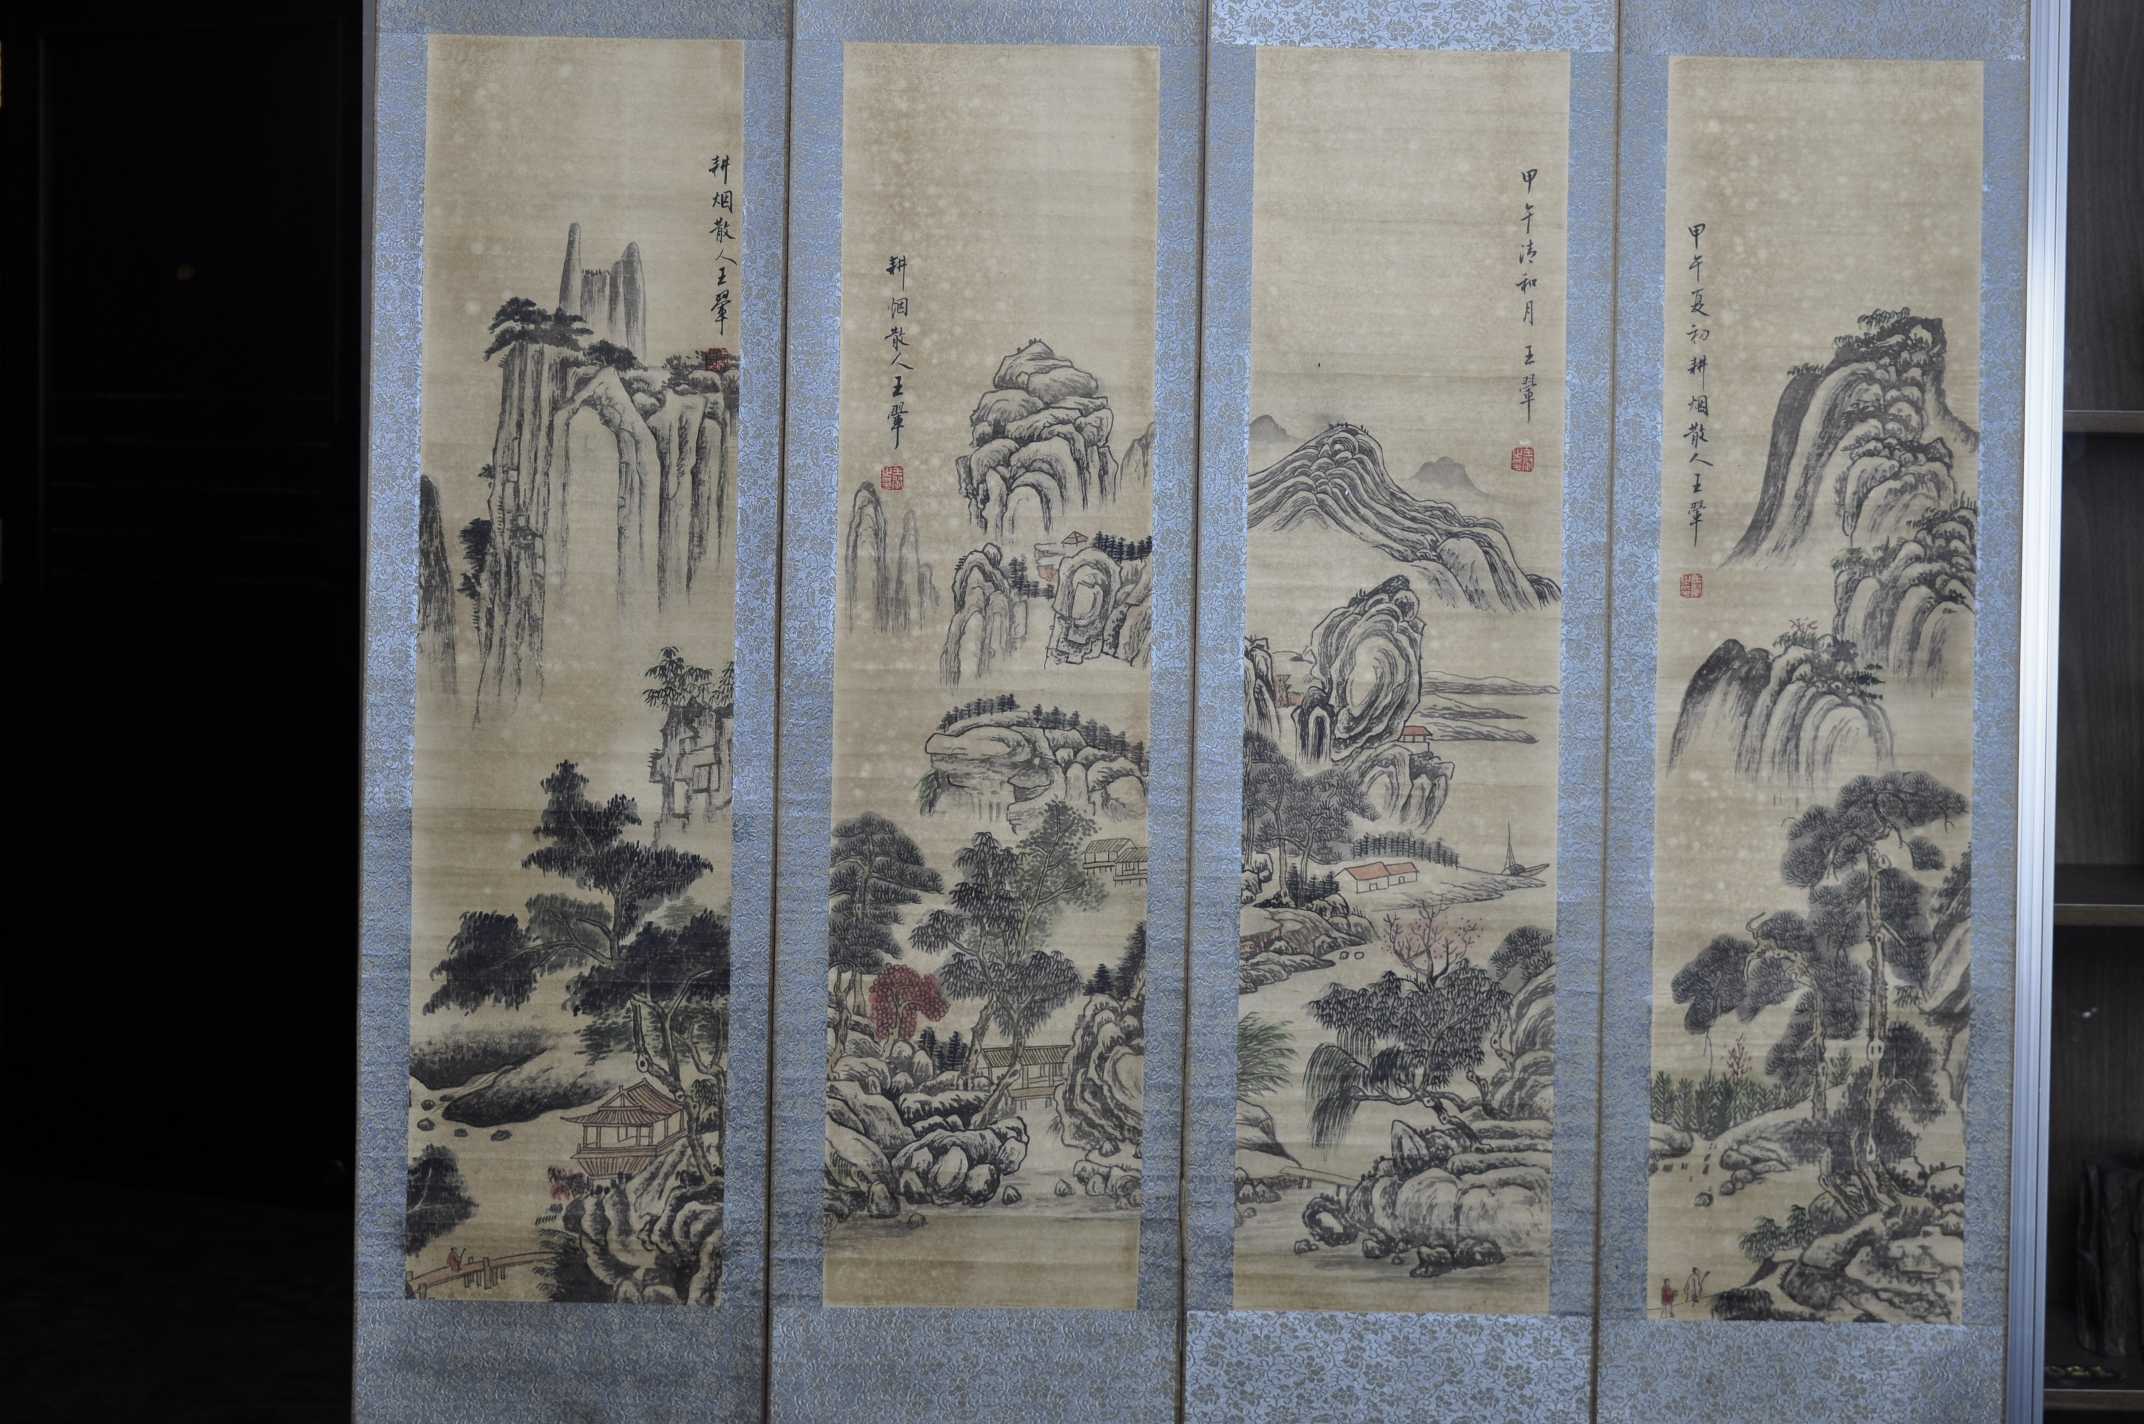 甲午夏初耕烟散人王翬
甲午清和月 王翬
耕烟散人王翬
耕烟散人王翬